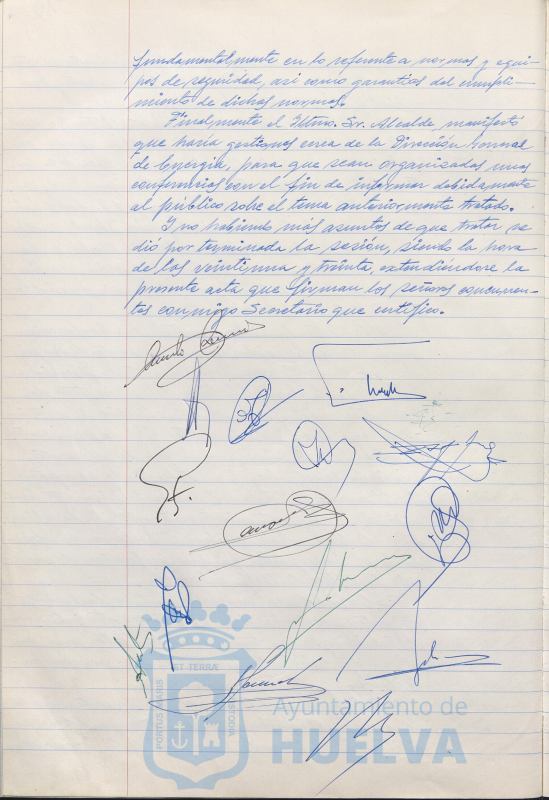 fundamentalmente en lo referente a normas y equi-
pos de seguridad, así como garantías del cumpli-
miento de dichas normas.
Finalmente el Iltmo. Sr. Alcalde, manifestó
que haría gestiones cerca de la Dirección General
de Energía, para que sean organizadas unas
conferencias con el fin de informar debidamente
al público sobre el tema anteriormente tratado.
Y no habiendo más asuntos de que tratar se
dió por terminada la sesión, siendo la hora
de las veintiuna y treinta, extendiéndose la
presente acta que firman los señores concurren-
tes conmigo Secretario que certifico.
ET TERRÆ
PORTUS MARIS
CUSTODIA
Ayuntamiento de
HUELVA